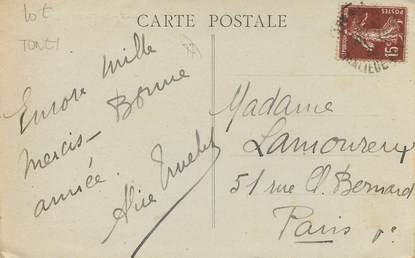 lot
CARTE POSTALE
POSTES
15c
Encore mille
mercis - Bonne
année.
Alice
Madame
Lamoureux
51 rue Cl. Bernard
Paris